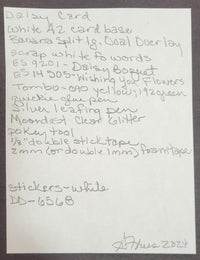 Daisy Card
White A2 card base
Banana Split 1/8. Oval Overlay
scrap white fo words
ES 9201 - Daisy Boquet
ES14505-Wishing you Flowers
Tombo-090 yellow, 192green
quickie glue pen
Silver leafing pen
Moondust Clear Glitter
pokey tool
1/8" double stick tape
2mm (or double 1mm) foam tape
stickers-white
DD-6568
2024